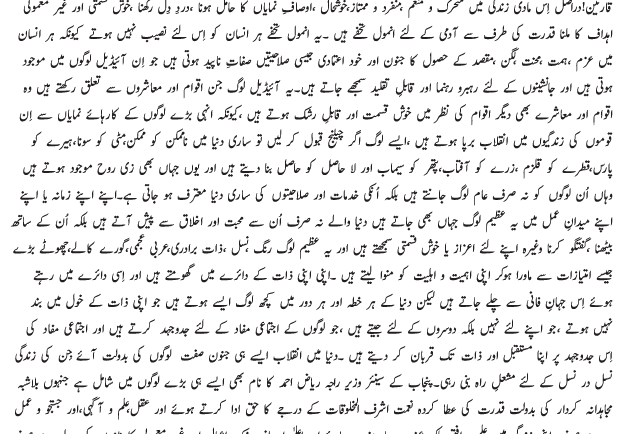 قارئین! دراصل اِس مادی زندگی میں متحرک و منعم ،منفرد و ممتاز،خوشحال ،اوصافِ نمایاں کا حامل ہونا ،دردِ دِل رکھنا ،خوش قسمتی اور غیر معمولی
اہداف کا ملنا قدرت کی طرف سے آدمی کے لئے انمول تحفے ہیں ۔یہ انمول تحفے ہر انسان کو اِس لئے نصیب نہیں ہوتے کیونکہ ہر انسان
میں عزم ،ہمت ،محنت ،لگن ،مقصد کے حصول کا جنون اور خود اعتمادی جیسی صلاحیتیں صفات ناپید ہوتی ہیں جو اِن آئیڈیل لوگوں میں موجود
ہوتی ہیں اور جانشینوں کے لئے رہبرو رہنما اور قابلِ تقلید سمجھے جاتے ہیں۔یہ آئیڈیل لوگ جن اقوام اور معاشروں سے تعلق رکھتے ہیں وہ
اقوام اور معاشرے بھی دیگر اقوام کی نظر میں خوش قسمت اور قابلِ رشک ہوتے ہیں ،کیونکہ انہی بڑے لوگوں کے کارہائے نمایاں سے اِن
قوموں کی زندگیوں میں انقلاب برپا ہوتے ہیں ،ایسے لوگ اگر چیلنج قبول کر لیں تو ساری دنیا میں ناممکن کو ممکن،مٹی کو سونا،ہیرے کو
پارس،قطرے کو قلزم ،زرے کو آفتاب،پتھر کو سیماب اور لا حاصل کو حاصل بنا دیتے ہیں اور یوں جہاں بھی زی روح موجود ہوتے ہیں
وہاں اُن لوگوں کو نہ صرف عام لوگ جانتے ہیں بلکہ اُنکی خدمات اور صلاحیتوں کی ساری دنیا معترف ہو جاتی ہے۔اپنے اپنے زمانہ یا اپنے
اپنے میدانِ عمل میں یہ عظیم لوگ جہاں بھی جاتے ہیں دنیا والے نہ صرف اُن سے محبت اور اخلاق سے پیش آتے ہیں بلکہ اُن کے ساتھ
بیٹھنا ،گفتگو کرنا وغیرہ اپنے لئے اعزاز یا خوش قسمتی سمجھتے ہیں اور یہ عظیم لوگ رنگ ،نسل ،ذات برادری،عربی عجمی،گورے کالے،چھوٹے بڑے
جیسے امتیازات سے ماورا ہوکر اپنی اہمیت و اہلیت کو منوا لیتے ہیں ۔اپنی اپنی ذات کے دائرے میں گھومتے ہیں اور اِسی دائرے میں رہتے
ہوئے اِس جہانِ فانی سے چلے جاتے ہیں لیکن دنیا کے ہر خطہ اور ہر دور میں کچھ لوگ ایسے ہوتے ہیں جو اپنی ذات کے خول میں بند
نہیں ہوتے ،جو اپنے لئے نہیں بلکہ دوسروں کے لئے جیتے ہیں ،جو لوگوں کے اجتماعی مفاد کے لئے جدوجہد کرتے ہیں اور اجتماعی مفاد کی
اِس جدوجہد پر اپنا مستقبل اور ذات تک قربان کر دیتے ہیں ۔دنیا میں انقلاب ایسے ہی جنون صفت لوگوں کی بدولت آئے جن کی زندگی
نسل در نسل کے لئے مشعلِ راہ بنی رہی۔پنجاب کے سینئر وزیر راجہ ریاض احمد کا نام بھی ایسے ہی بڑے لوگوں میں شامل ہے جنہوں بلاشبہ
مجاہدانہ کردار کی بدولت قدرت کی عطا کردہ نعمت اشرف المخلوقات کے درجے کا حق ادا کرتے ہوئے اور عقل،علم و آگہی،اور جستجو و عمل